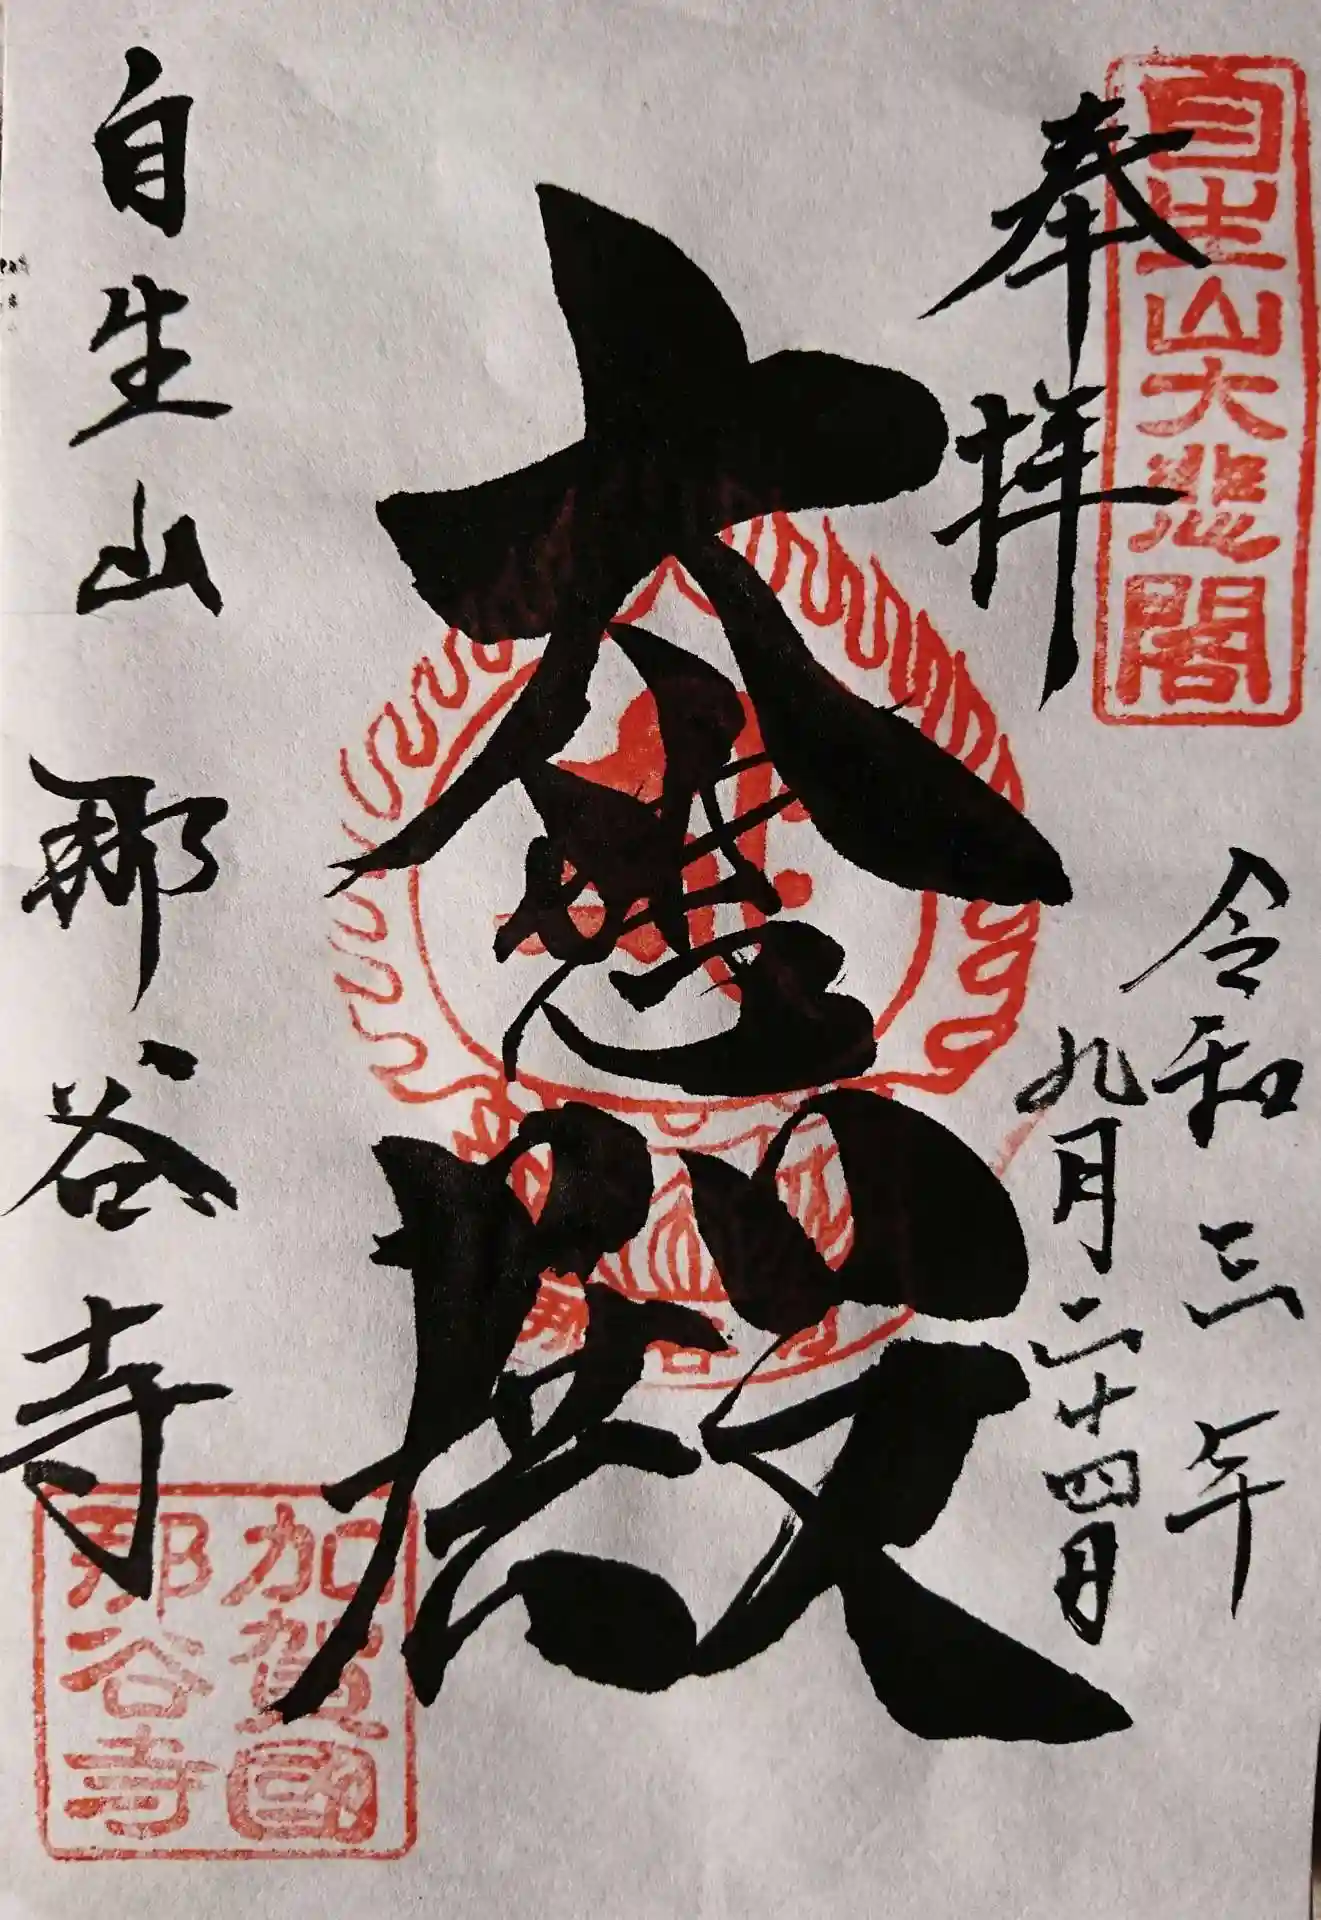 自生山大悲閣
奉拝
令和三年
九月二十四日
大悲殿
自生山那谷寺
加賀國
那谷寺